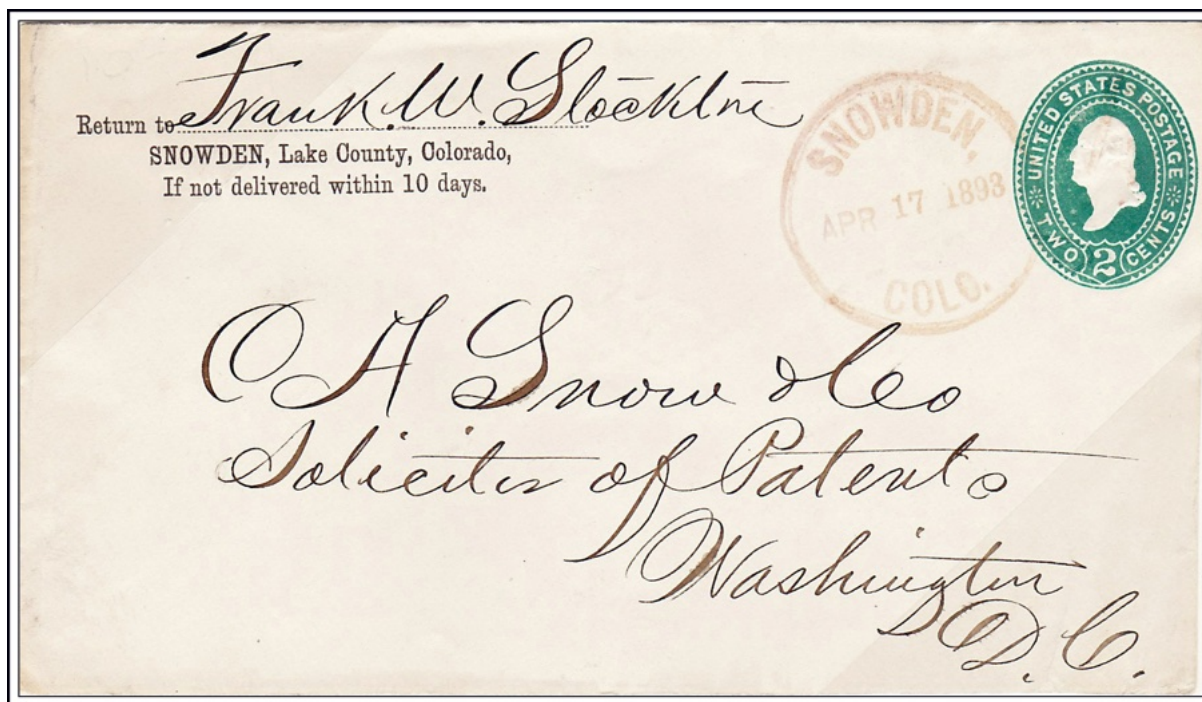 Return to Frank. W. Stockton
SNOWDEN, Lake County, Colorado,
If not delivered within 10 days.
SNOWDEN,
APR 17 1893
COLO.
UNITED STATES POSTAGE
TWO 2 CENTS
C A Snow & Co
Solicitor of Patents
Washington
D. C.